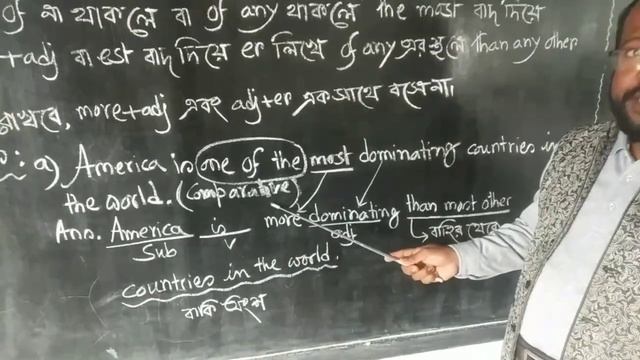 of না থাকলে বা of any থাকলে the most বাদ দিয়ে
+adj বা est বাদ দিয়ে er লিখে of any এর স্থলে than any other
রাখবে, more+adj এবং adj+er একসাথে বসেনা।
a) America is one of the most dominating countries in
the world. (Comparative)
Ans. America is more dominating than most other
Sub v adj বাহির থেকে
countries in the world.
বাকি অংশ